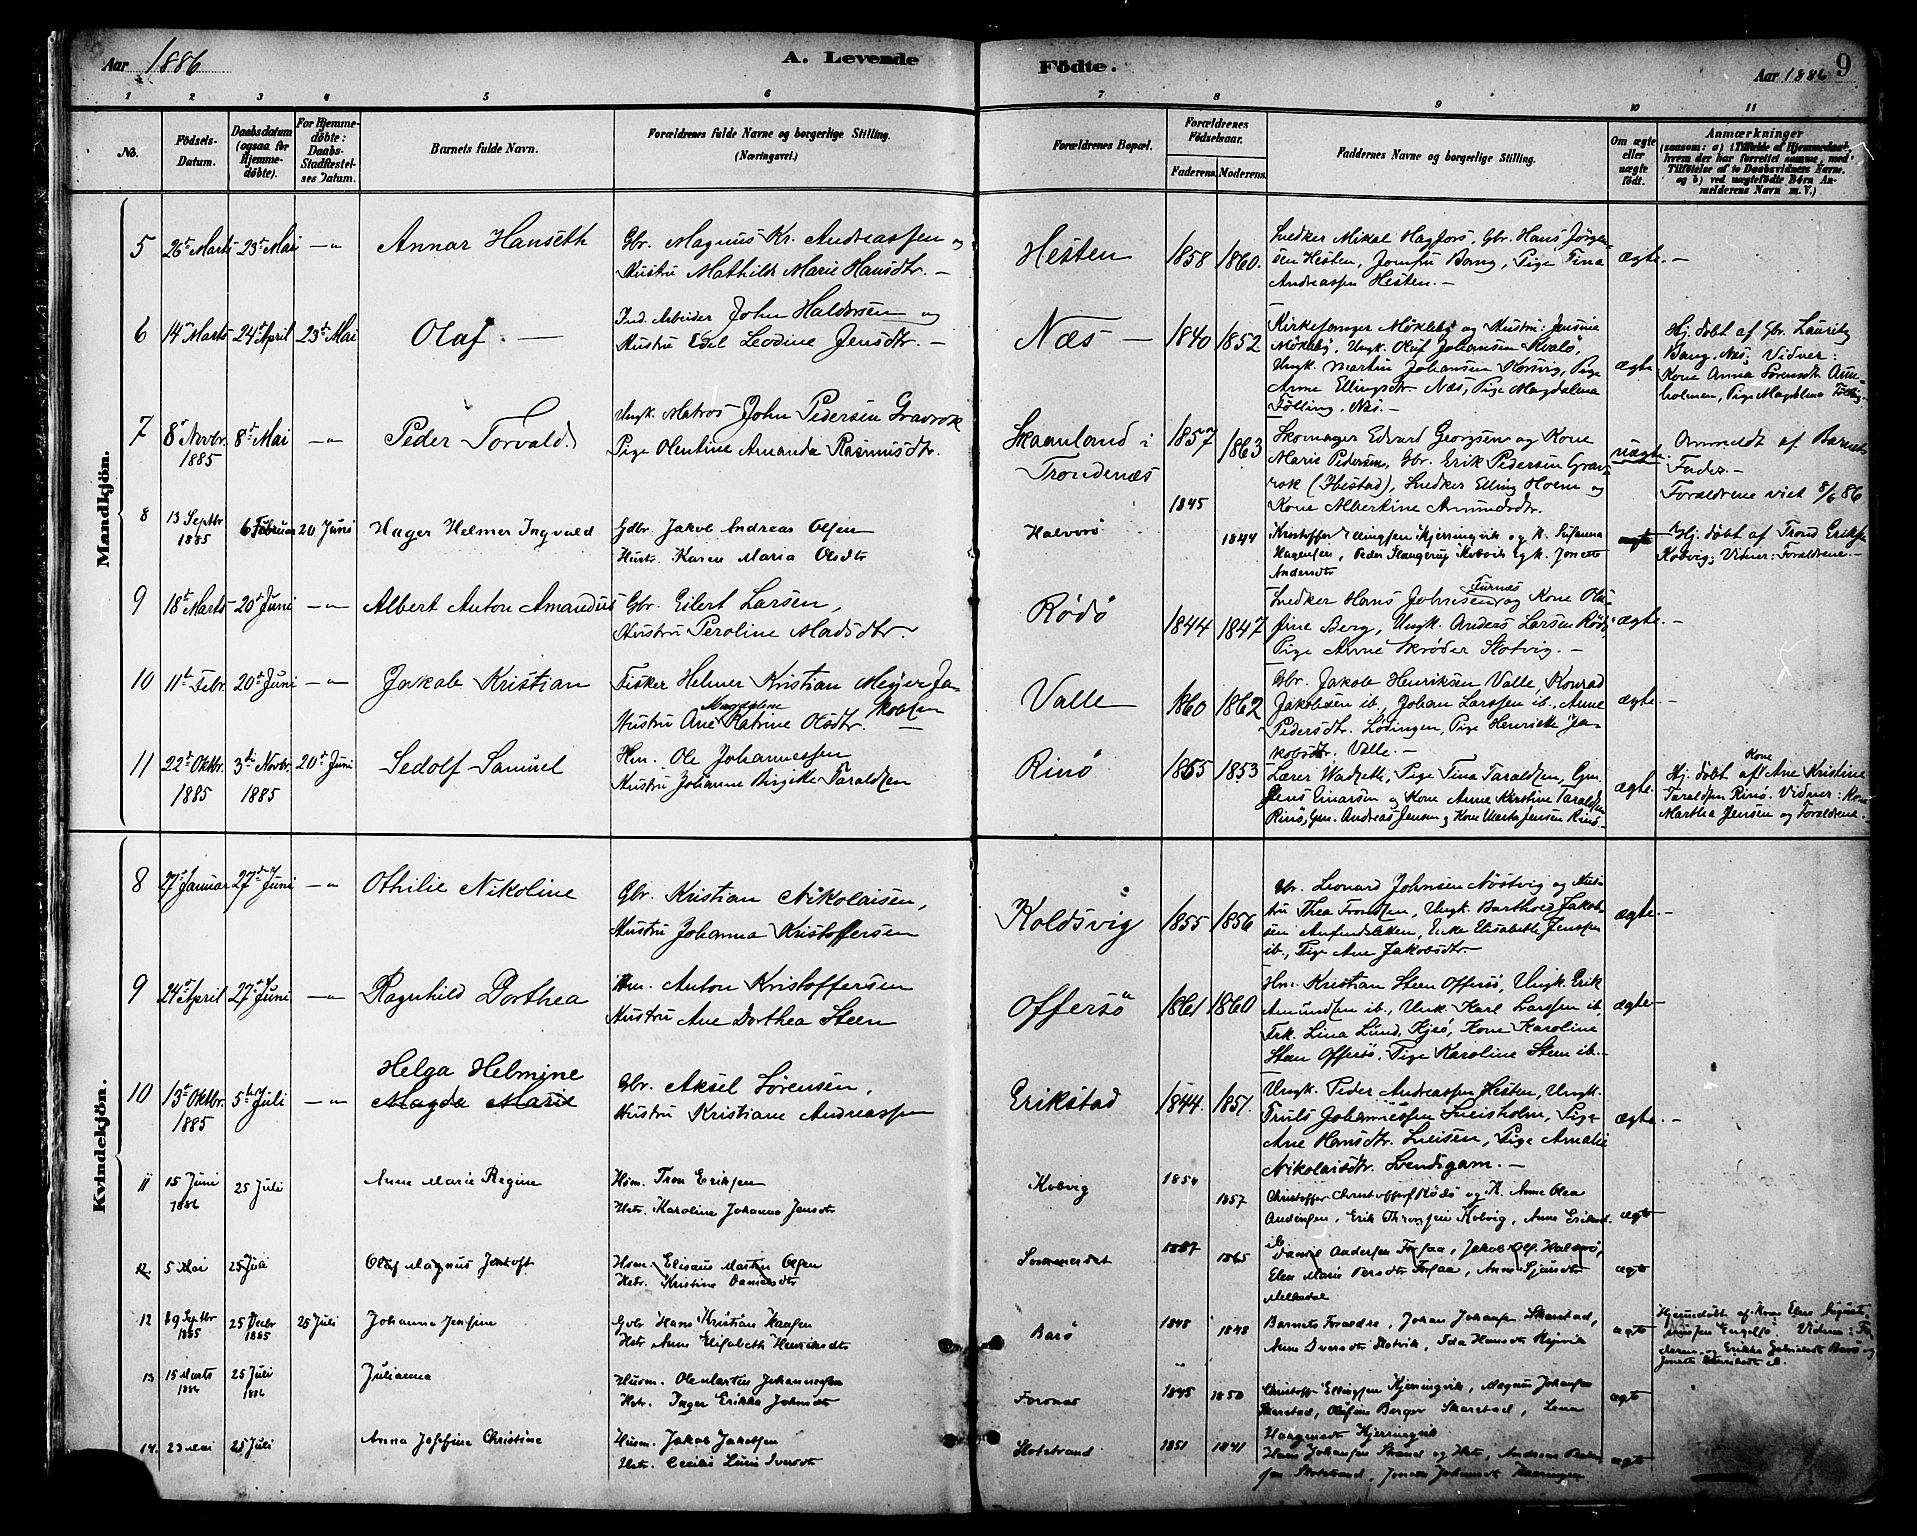 Aar 1886
A. Levende
Fødte.
Aar 1886 9
1 2 3 4 5 6 7 8 9 10 11
No.
Fødsels-Datum.
Daabsdatum (ogsaa for Hjemmedøbte).
For Hjemmedøbte: Daabs-Stadfæstelses Datum.
Barnets fulde Navn.
Forældrenes fulde Navne og borgerlige Stilling.
(Næringsvei.)
Forældrenes Bopæl.
Forældrenes Fødselsaar.
Faderens. Moderens.
Faddernes Navne og borgerlige Stilling.
Om ægte eller uægte født.
Anmærkninger
(saasom: a) i Tilfælde af Hjemmedaab, hvem der har forrettet samme, med Tilføielse af to Daabsvidners Navne, og b) ved uægtefødte Børn Anmelderens Navn m. V.)
Mandkjön.
5 26de Marts 23de Mai —"— Annar Hanseth
Gbr. Magnus Kr. Andreassen og
Hustru Mathilde Marie Hansdtr. —
Hesten 1858 1860.
Snedker Mikal Hagfors, Gbr. Hans Jørgen-
sen Hesten, Jomfru Bang, Pige Tina
Andreassen Hesten. —
ægte. —
6 14de Marts 24de April 23de Mai Olaf. —
Ind. Arbeider John Haldorsen og
Hustru Edel Leodine Jensdtr. —
Næs — 1840 1852
Kirkesanger Møkleby og Hustru Jensine
Møkleby, Ungk. Oluf Johansen Kvalø,
Ungk. Martin Johansen Korsvig, Pige
Anne Ellingsdtr. Næs, Pige Magdalena
Følling, Næs. —
ægte
Hj. døbt af Gbr. Lauritz
Bang, Næs, Vidner:
Kone Anna Sørensdtr.
holmen, Pige Magdalena
7 8de Novbr. 1885 8de Mai —"— Peder Torvald.
Ungk. Matros John Pedersen Gravrok
Pige Olentine Amanda Rasmusdtr.
Skaanland i
Trondenæs
1857 1863
Skomager Edvard Georgsen og Kone
Marie Pedersen, Gbr. Erik Pedersen Grav-
rok (Ibestad), Snedker Elling Hoem og
Kone Albertine Amundsdtr.
uægte.
Anmeldt af Barnets
Fader. —
Forældrene viet 8/6 86
8 13 Septbr 1885 6 Februar 20 Juni Hager Helmer Ingvald
Gdbr. Jakob Andreas Olsen
Hustr. Karen Maria Olsdtr
Halvorø 1845 1844
Kristoffer Ellingsen Kjerringvik og K. Susanna
Hagensen, Peder Slangerup Kobvik Ungk. Jonette
Andersdtr
ægte —
Hj. døbt af Trond Eriksen
Kobvig; Vidner: Forældrene. —
9 18de Marts 20de Juni —"— Albert Anton Amandus
Gbr. Eilert Larsen,
Hustru Peroline Madsdtr. —
Rødø 1844 1847
Furnæs
Snedker Hans Johnsen og Kone Olu-
fine Berg, Ungk. Anders Larsen Rødø
Pige Anne Skrøder Slotvig. —
ægte. —
10 11te Febr. 20de Juni —"— Jakob Kristian
Fisker Helmer Kristian Meyer Ja-
kobsen
Magdalene
Hustru Ane Katrine Olsdtr. —
Valle 1860 1862
Gbr. Jakob Henriksen Valle, Konrad
Jakobsen ib., Johan Larssen ib., Anne
Pedersdtr. Lødingen, Pige Henrikke Ja-
kobsdtr. Valle. —
ægte. —
11 22de Oktbr. 1885 3die Novbr. 1885 20de Juni Sedolf Samuel
Hm. Ole Johannessen
Hustru Johanne Birgitte Taraldsen
Rinø 1855 1853
Lærer Wadseth, Pige Tina Taraldsen, Gm.
Jens Einarsen og Kone Anne Kirstine Taraldsen
Rinø, Gm. Andreas Jensen og Kone Marta Jensen Rinø. —
ægte.
Kone
Hj. døbt af Ane Kristine
Taraldsen Rinø. Vidner: Kone
Martha Jensen og Forældrene.
Kvindekjön.
8 27de Januar 27de Juni —"— Othilie Nikoline
Gbr. Kristian Nikolaisen,
Hustru Johanna Kristoffersen
Koldsvig 1855 1856
Gbr. Leonard Johnsen Nøstvig og Hus-
tru Thea Trondsen, Ungk. Barthold Jakob-
sen, Enke Elisabeth Jenssen
ib., Pige Ane Jakobsdtr. —
ægte. —
9 24de April 27de Juni —"— Ragnhild Dorthea
Hm. Anton Kristoffersen
Hustru Ane Dorthea Steen
Offersø 1861 1860
Hm. Kristian Steen Offersø, Ungk. Erik
Amundsen ib., Ungk. Karl Larssen ib.
Frk. Lina Lund, Kjø, Kone Karoline
Steen Offersø, Pige Karoline Steen ib. —
ægte —
10 13de Oktbr. 1885 5te Juli —"— Helga Helmine
Magda Marie
Gbr. Aksel Sørensen,
Hustru Kristiane Andreassen
Erikstad 1844 1851.
Ungk. Peder Andreassen Hesten, Ungk.
Truls Johannessen Sneisholm, Pige
Ane Hansdtr. Sneisen, Pige Amalie
Nikolaisdtr. Svendsgam. —
ægte. —
11 15 Juni 1886 25 Juli Anne Marie Regine
Húsm. Tron Eriksen
Hstr. Karoline Johanna Jensdtr
Kobvig 1854 1857
Christoffer Christoffersen Rødø og K. Anne Olea
Andersen, Erik Thronsen Kobvig, Anne Eriksd.
ib
ægte
12. 5 Mai 25 Juli Olaf Magnus Jentoft
Húsm Elisæus Martin Olsen
Hstr. Kristine Danielsdtr
Sommerset 1857 1865
Daniel Andersen Forsaa, Jakob Ols. Halvorø,
Elen Marie Persdtr Forsaa, Anne
ægte
12 29 Septbr 1885 25 Decbr 1885 25 Juli Johanna Jensine
Gdbr Hans Kristian Hansen
Hstr. Anne Elisabeth Henriksdtr
Barø 1848 1848
Barnets Forældre, Johan Johansen Skarstad,
Anne Iversdtr Slotvik, Ida Hansdtr
ægte
Hjemmedøbt af Kone Elen
Engelsø. Vidner: Fa-
deren og Erikka Gabrielsdtr Barø og
13 15 Marts 1886 25 Juli 1886 Julianna
Husm. Ole Martin Johannessen
Hstr. Inger Erikka Johnsdtr
Forsnæs 1845 1850
Christoffer Ellingsen Kjerringvik, Magnus Johansen
Skarstad, Olufine Berger Skarstad, Lena
Haagensdtr Kjerringvik
ægte
14. 23 Mai 25 Juli Anna Josefine Christine
Husm. Jakob Jakobsen
Hstr. Cecilie Lucie Iversdtr
Slotstrand 1851 1841
Hans Johansen Strand og Hstr., Andreas Peder-
sen Slotstrand, Jonette Johansdtr
ægte